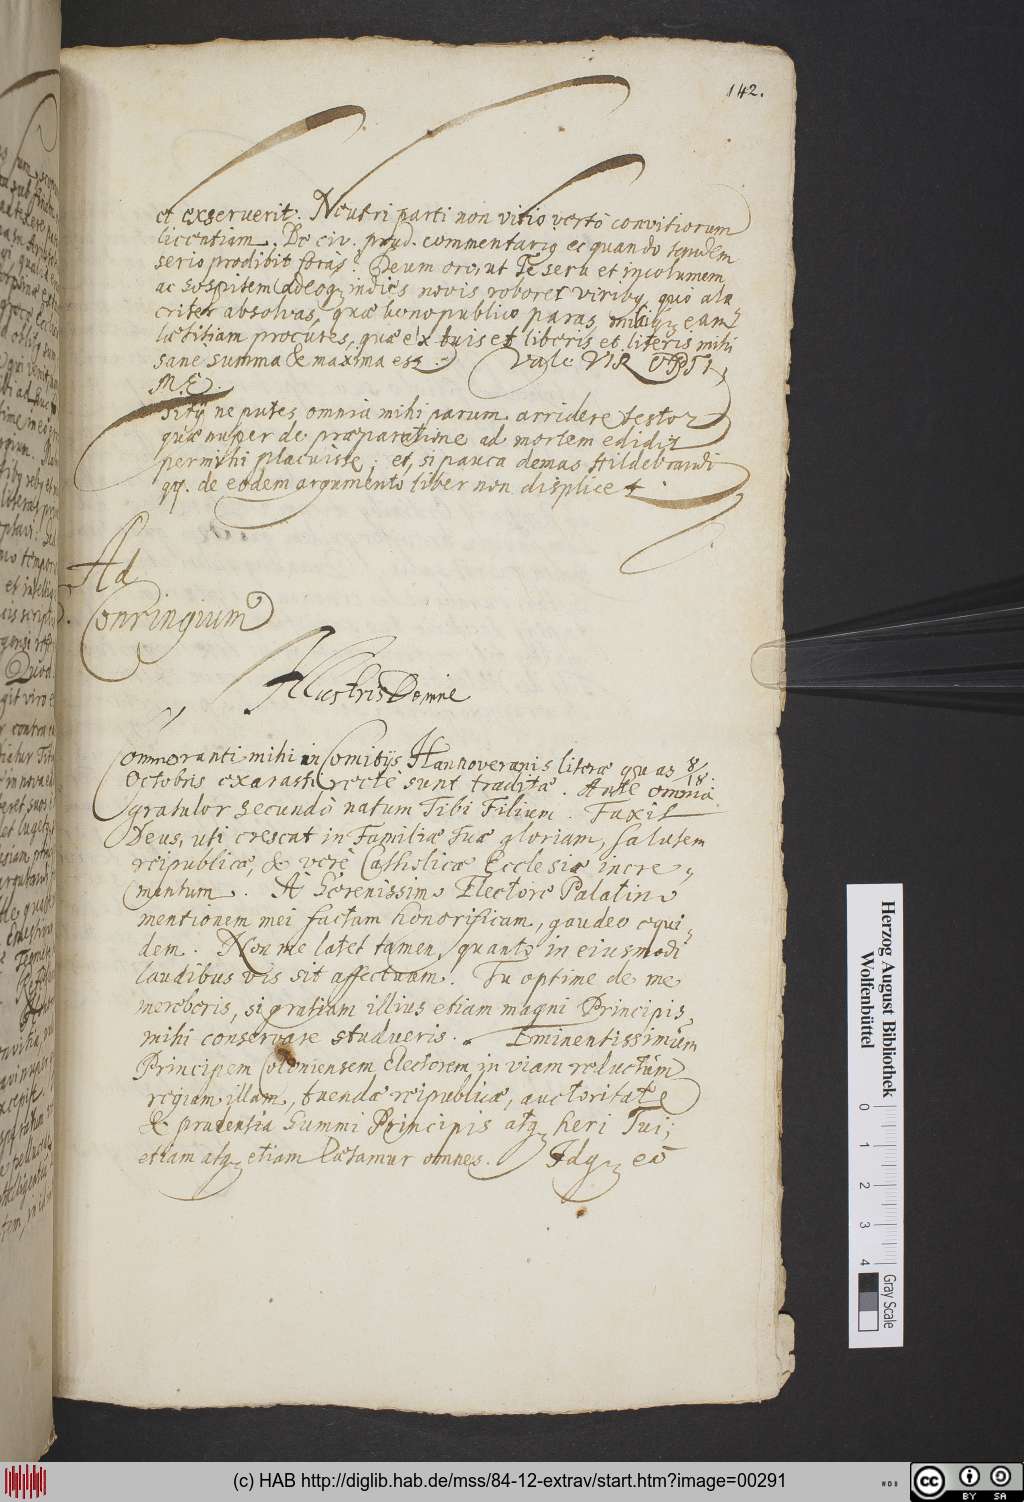 142.
et exseruerit. Neutri parti non vitio verto convitiorum
licentiam. De civ. prud. commentario ecquando tandem
serio prodibit foras? Deum oro, ut Te seru et incolumem
ac sospitem adeoq; indies novis roboret viribus, quo ala
criter absolvas, quæ bono publico paras, mihiq; eam
lætitiam procures, quæ ex tuis et liberis et literis mihi
sane summa & maxima est. Vale VIR OPTI
ME.
Titij ne putes omnia mihi parum arridere testor
quæ nuper de præparatione ad mortem edidit
permihi placuisse; et, si pauca demas Hildebrandi
qq. de eodem argumento liber non displicet.
Ad
Conringium
Illustris Domine
Commoranti mihi in Comitijs Hannoveranis literæ qvas 8/18
Octobris exarasti recte sunt traditæ. Ante omnia
gratulor secundò natum Tibi Filium. Faxit
Deus, uti crescat in Familiæ Tuæ gloriam, salutem
reipublicæ, & verè Catholicæ Ecclesiæ incre
mentum. A Serenissimo Electore Palatino
mentionem mei factam honorificam, gaudeo equi
dem. Non me latet tamen, quanta in eiusmodi
laudibus vis sit affectuum. Tu optime de me
mereberis, si gratiam illius etiam magni Principis
mihi conservare studueris. Eminentissimum
Principem Coloniensem Electorem in viam reductum
regiam illam, tuendæ reipublicæ, auctoritate
& prudentia Summi Principis atq; heri Tui;
etiam atq; etiam lætamur omnes. Idq; eò
Herzog August Bibliothek
Wolfenbüttel
0 1 2 3 4
Gray Scale
(c) HAB http://diglib.hab.de/mss/84-12-extrav/start.htm?image=00291
cc BY SA